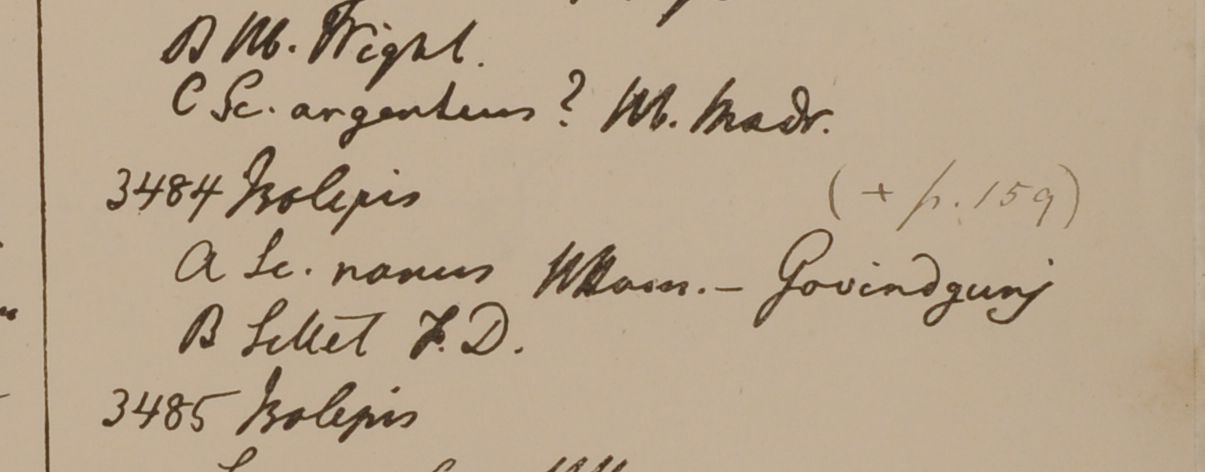 B Hb. Wight.
C Sc. argenteus? Hb. Madr.
3484 Isolepis (+ p. 159)
a Sc. nanus HHam. - Govindgunj
B Sillet F. D.
3485 Isolepis